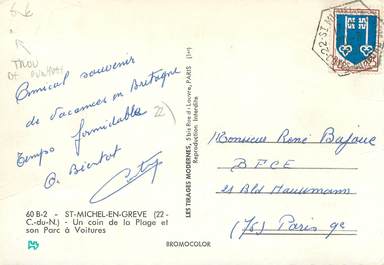 Amical souvenir
de vacances en Bretagne
Temps formidable
A. Bientot
60 B-2 - ST-MICHEL-EN-GREVE (22 -
C.-du-N.) - Un coin de la Plage et
son Parc à Voitures
LES TIRAGES MODERNES, 5 bis Rue du Louvre, PARIS (1er)
Reproduction Interdite
BROMOCOLOR
22-ST MI
Monsieur René Bafaux
21 Bld Haussmann
(75) Paris 9e